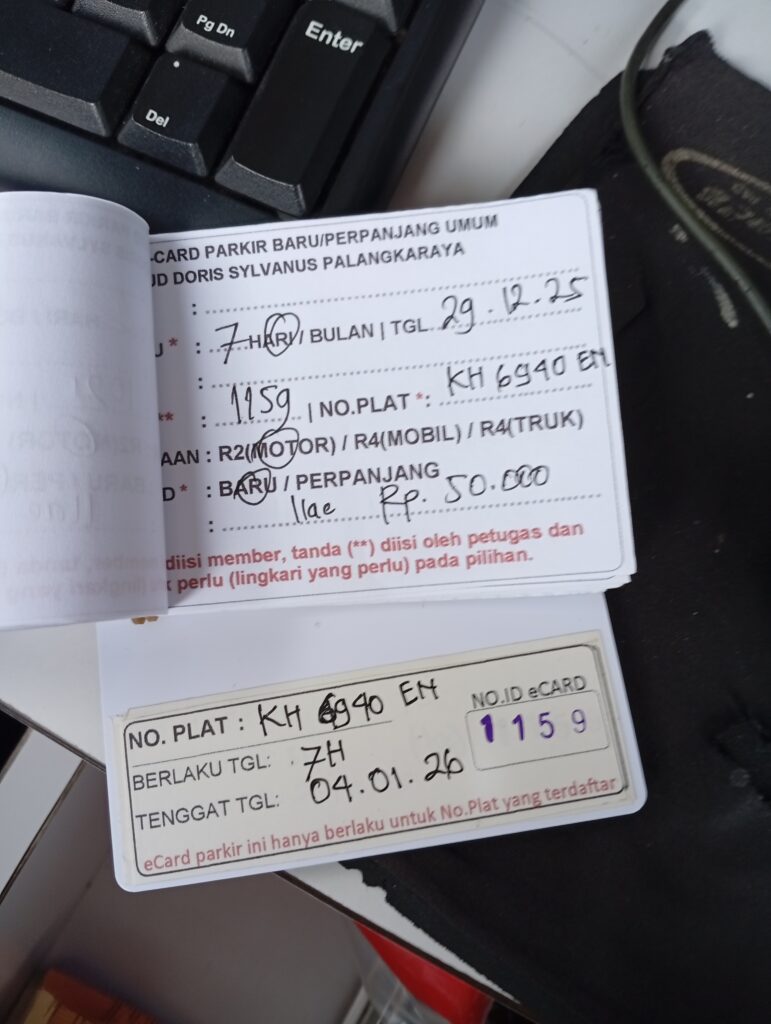 Pg Dn
Enter
Del
-CARD PARKIR BARU/PERPANJANG UMUM
UD DORIS SYLVANUS PALANGKARAYA
:
U * : 7 HARI / BULAN | TGL. 29.12.25
:
** : 1159 | NO.PLAT *: KH 6940 EM
AAN : R2(MOTOR) / R4(MOBIL) / R4(TRUK)
D * : BARU / PERPANJANG
: Rp. 50.000
diisi member, tanda (**) diisi oleh petugas dan
perlu (lingkari yang perlu) pada pilihan.
NO. PLAT : KH 6940 EM
NO.ID eCARD
1159
BERLAKU TGL: 7H
TENGGAT TGL: 04.01.26
eCard parkir ini hanya berlaku untuk No.Plat yang terdaftar